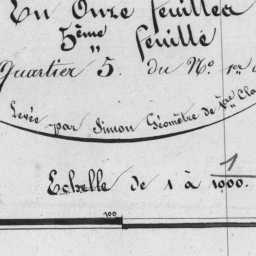 En Onze feuilles
5ème feuille
Quartier 5. du N°. 1er
Levée par Simon Géomètre de 1ère Cla
Echelle de 1 à 1000.
1
100